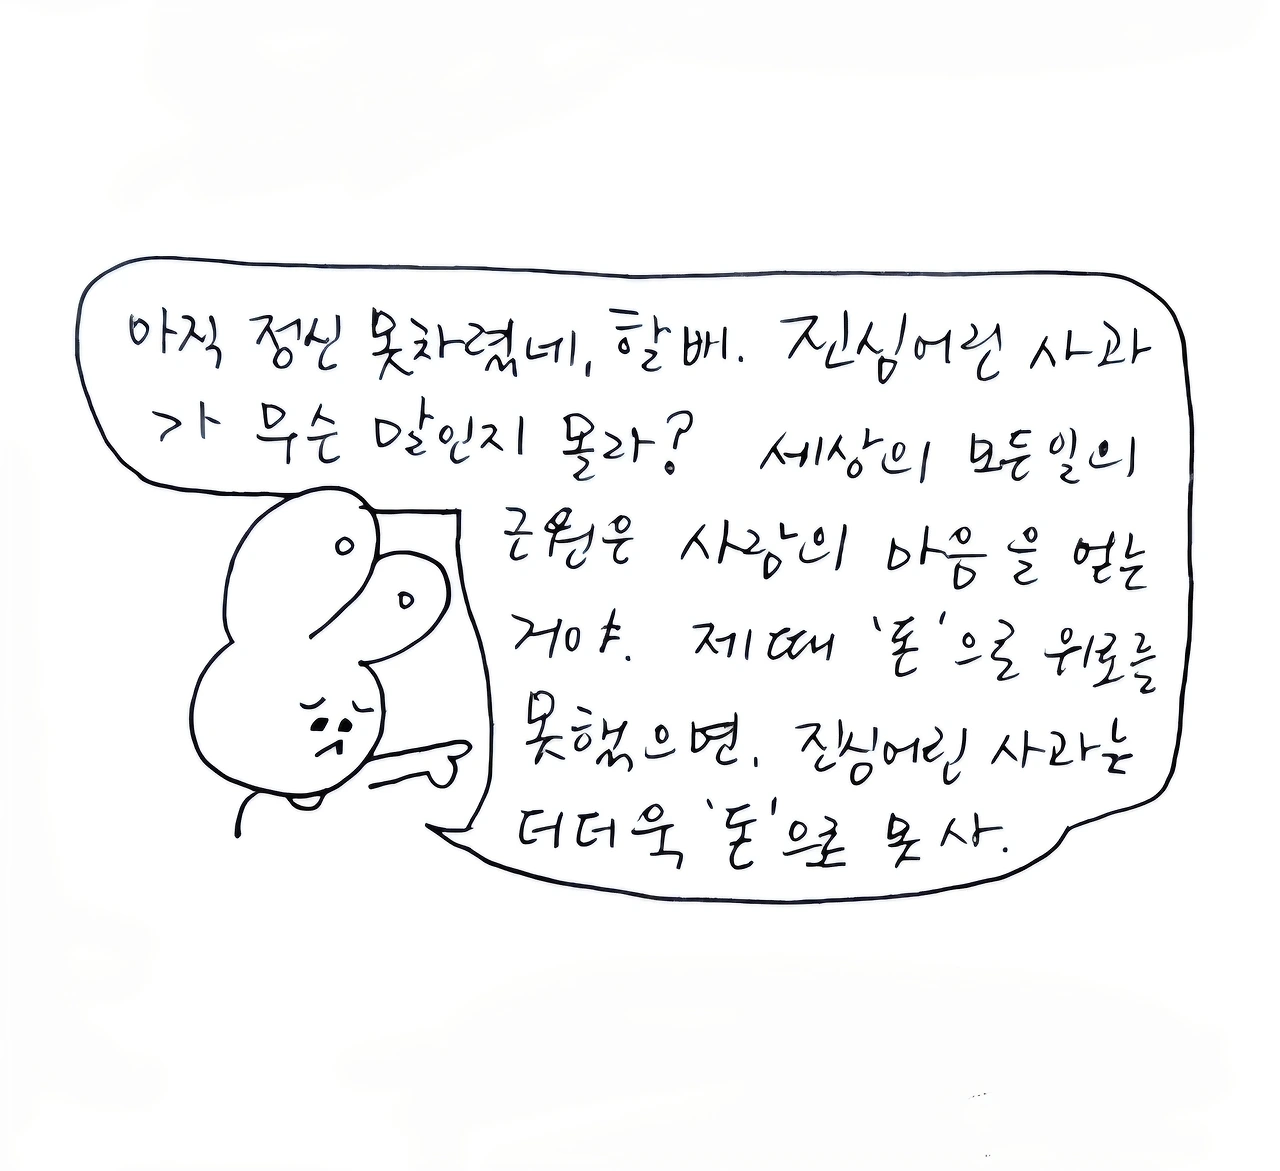 아직 정신 못차렸네, 할배. 진심어린 사과
가 무슨 말인지 몰라? 세상의 모든일의
근원은 사람의 마음을 얻는
거야. 제때 '돈'으로 위로를
못했으면, 진심어린 사과는
더더욱 '돈'으로 못 사.